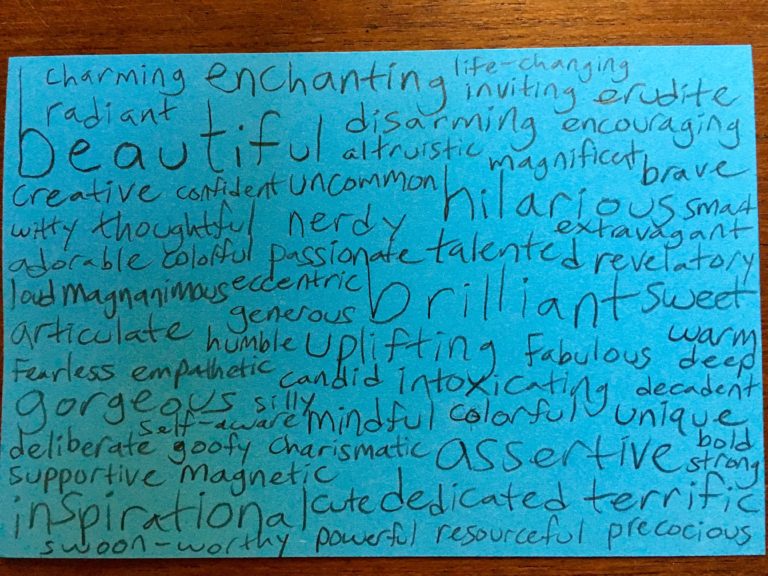 charming enchanting life-changing
radiant inviting erudite
beautiful disarming encouraging
altruistic magnificent brave
creative confident uncommon hilarious smart
witty thoughtful nerdy extravagant
adorable colorful passionate talented revelatory
loud magnanimous eccentric brilliant sweet
generous
articulate humble uplifting fabulous warm
deep
fearless empathetic candid intoxicating decadent
gorgeous silly mindful colorful unique
self-aware
deliberate goofy charismatic assertive bold
strong
supportive magnetic
inspirational cute dedicated terrific
swoon-worthy powerful resourceful precocious